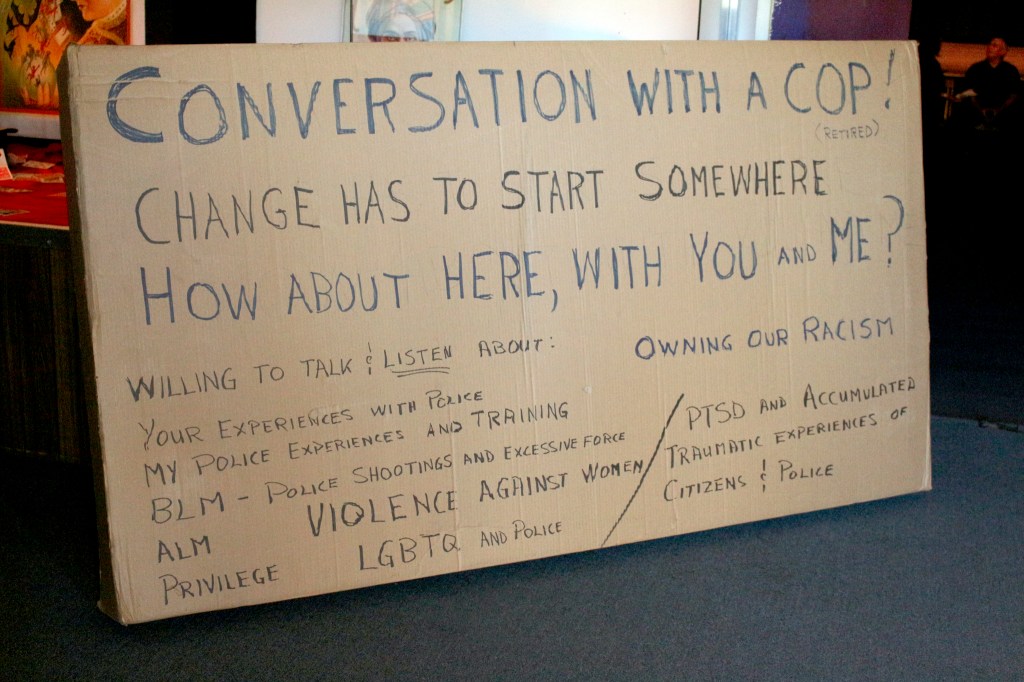 CONVERSATION WITH A COP!
(RETIRED)
CHANGE HAS TO START SOMEWHERE
HOW ABOUT HERE, WITH YOU AND ME?
WILLING TO TALK & LISTEN ABOUT:
OWNING OUR RACISM
YOUR EXPERIENCES WITH POLICE
MY POLICE EXPERIENCES AND TRAINING
BLM - POLICE SHOOTINGS AND EXCESSIVE FORCE
ALM
VIOLENCE AGAINST WOMEN
PRIVILEGE
LGBTQ AND POLICE
PTSD AND ACCUMULATED
TRAUMATIC EXPERIENCES OF
CITIZENS & POLICE